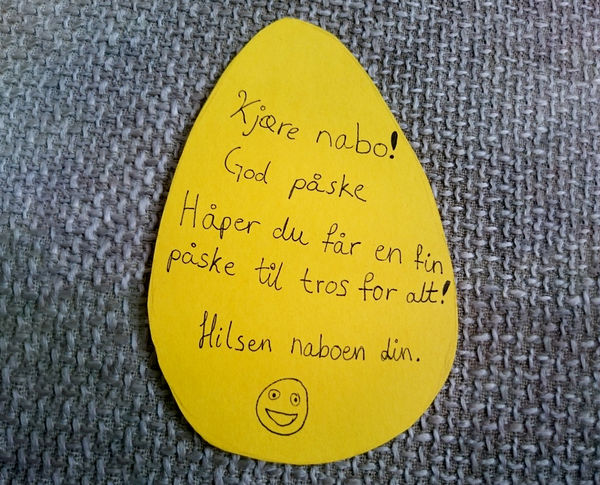 Kjære nabo!
God påske
Håper du får en fin
påske til tros for alt!
Hilsen naboen din.